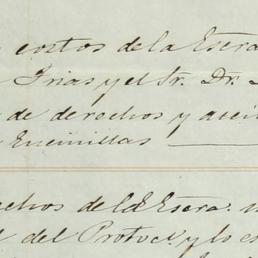 costos de la Escra
Frias y el Sr. Dr.
de derechos y acci
Encinillas
chos de ld Escra.
del Protoc. y lo es